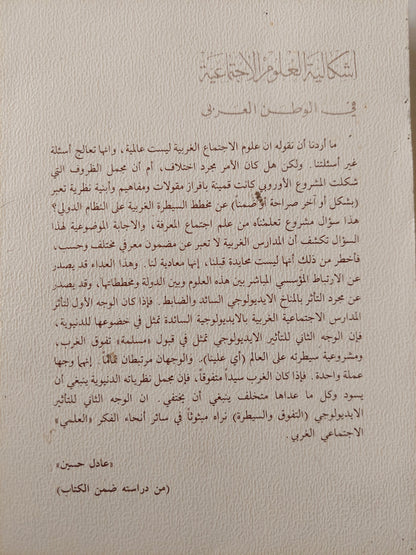 اشكالية العلوم الاجتماعية
في الوطن العربي
ما أردنا أن نقوله ان علوم الاجتماع الغربية ليست عالمية، وانها تعالج أسئلة
غير أسئلتنا. ولكن هل كان الأمر مجرد اختلاف، أم أن مجمل الظروف التي
شكلت المشروع الأوروبي كانت قمينة بافراز مقولات ومفاهيم وأبنية نظرية تعبر
(بشكل أو آخر صراحة أو ضمناً) عن مخطط السيطرة الغربية على النظام الدولي؟
هذا سؤال مشروع تعلمناه من علم اجتماع المعرفة، والاجابة الموضوعية لهذا
السؤال تكشف أن المدارس الغربية لا تعبر عن مضمون معرفي مختلف وحسب،
فأخطر من ذلك أنها ليست محايدة قبلنا، إنها معادية لنا. وهذا العداء قد يصدر
عن الارتباط المؤسسي المباشر بين هذه العلوم وبين الدولة ومخططاتها، وقد يصدر
عن مجرد التأثر بالمناخ الايديولوجي السائد والضابط. فإذا كان الوجه الأول لتأثر
المدارس الاجتماعية الغربية بالايديولوجية السائدة تمثل في خضوعها للدنيوية،
فإن الوجه الثاني للتأثير الايديولوجي تمثل في قبول «مسلمة» تفوق الغرب،
ومشروعية سيطرته على العالم (أي علينا). والوجهان مرتبطان تماماً. إنهما وجها
عملة واحدة. فإذا كان الغرب سيداً متفوقاً، فإن مجمل نظرياته الدنيوية ينبغي أن
يسود وكل ما عداها متخلف ينبغي أن يختفي. ان الوجه الثاني للتأثير
الايديولوجي (التفوق والسيطرة) نراه مبثوثاً في سائر أنحاء الفكر «العلمي»
الاجتماعي الغربي.
«عادل حسين»
(من دراسته ضمن الكتاب)